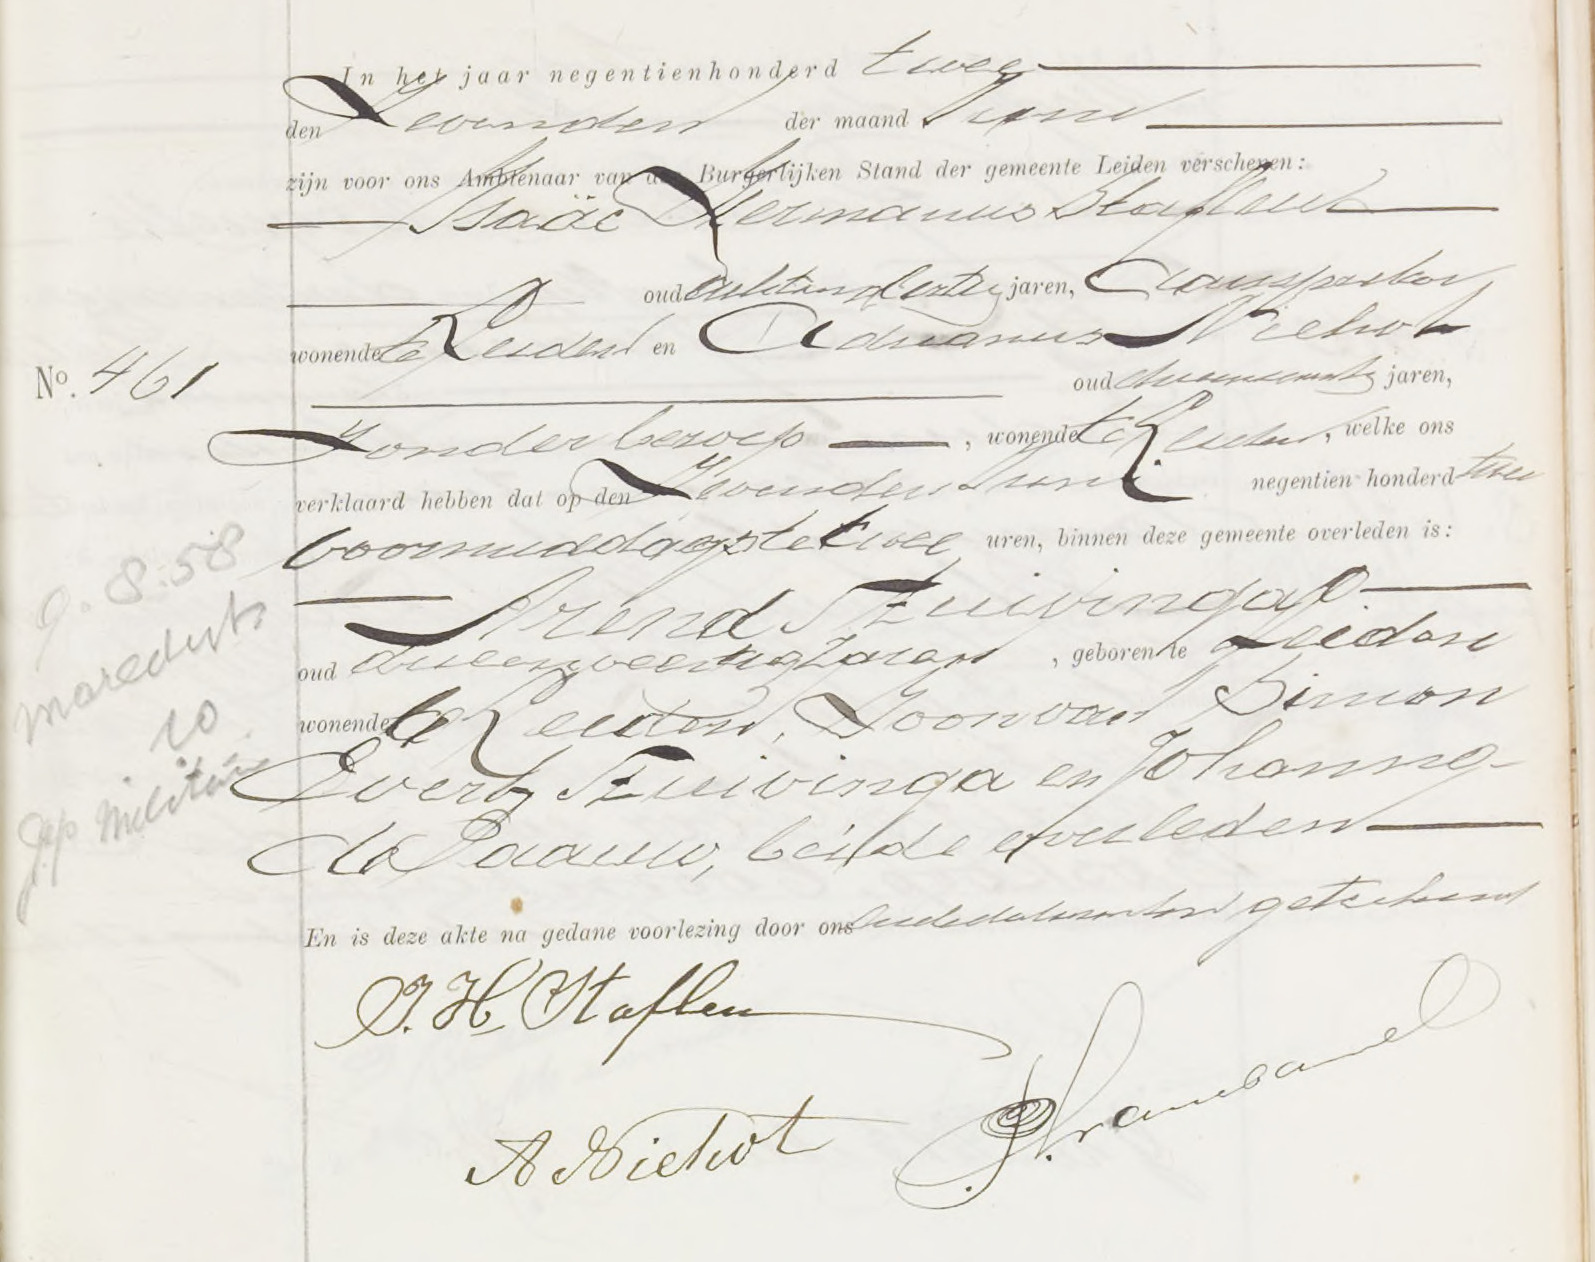 In het jaar negentienhonderd twee
den Zevenden der maand Juni
zijn voor ons Ambtenaar van den Burgerlijken Stand der gemeente Leiden verschenen:
Isaäc Hermanus Stafleu
oud achtendertig jaren, Aanspreker
wonende te Leiden en Adrianus Niehot
No. 461
oud jaren,
Zonder beroep, wonende te Leiden, welke ons
verklaard hebben dat op den Zevenden Juni negentien honderd twee
voormiddags te twee uren, binnen deze gemeente overleden is:
Arend Stuivinga
oud jaren, geboren te Leiden
wonende te Leiden, Zoon van Simon
Evert Stuivinga en Johanna
de Paauw, beide overleden
En is deze akte na gedane voorlezing door ons geteekend
9.8.58
10
Militair
J. H. Stafleu
A Niehot